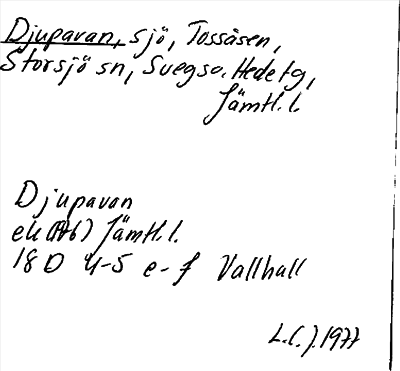 Djupavan, sjö, Tossåsen,
Storsjö sn, Svegs o. Hede tg,
Jämtl. l.
Djupavan
ek Jämtl. l.
18 D 4-5 e-f Vallhall
L.C.J. 1977